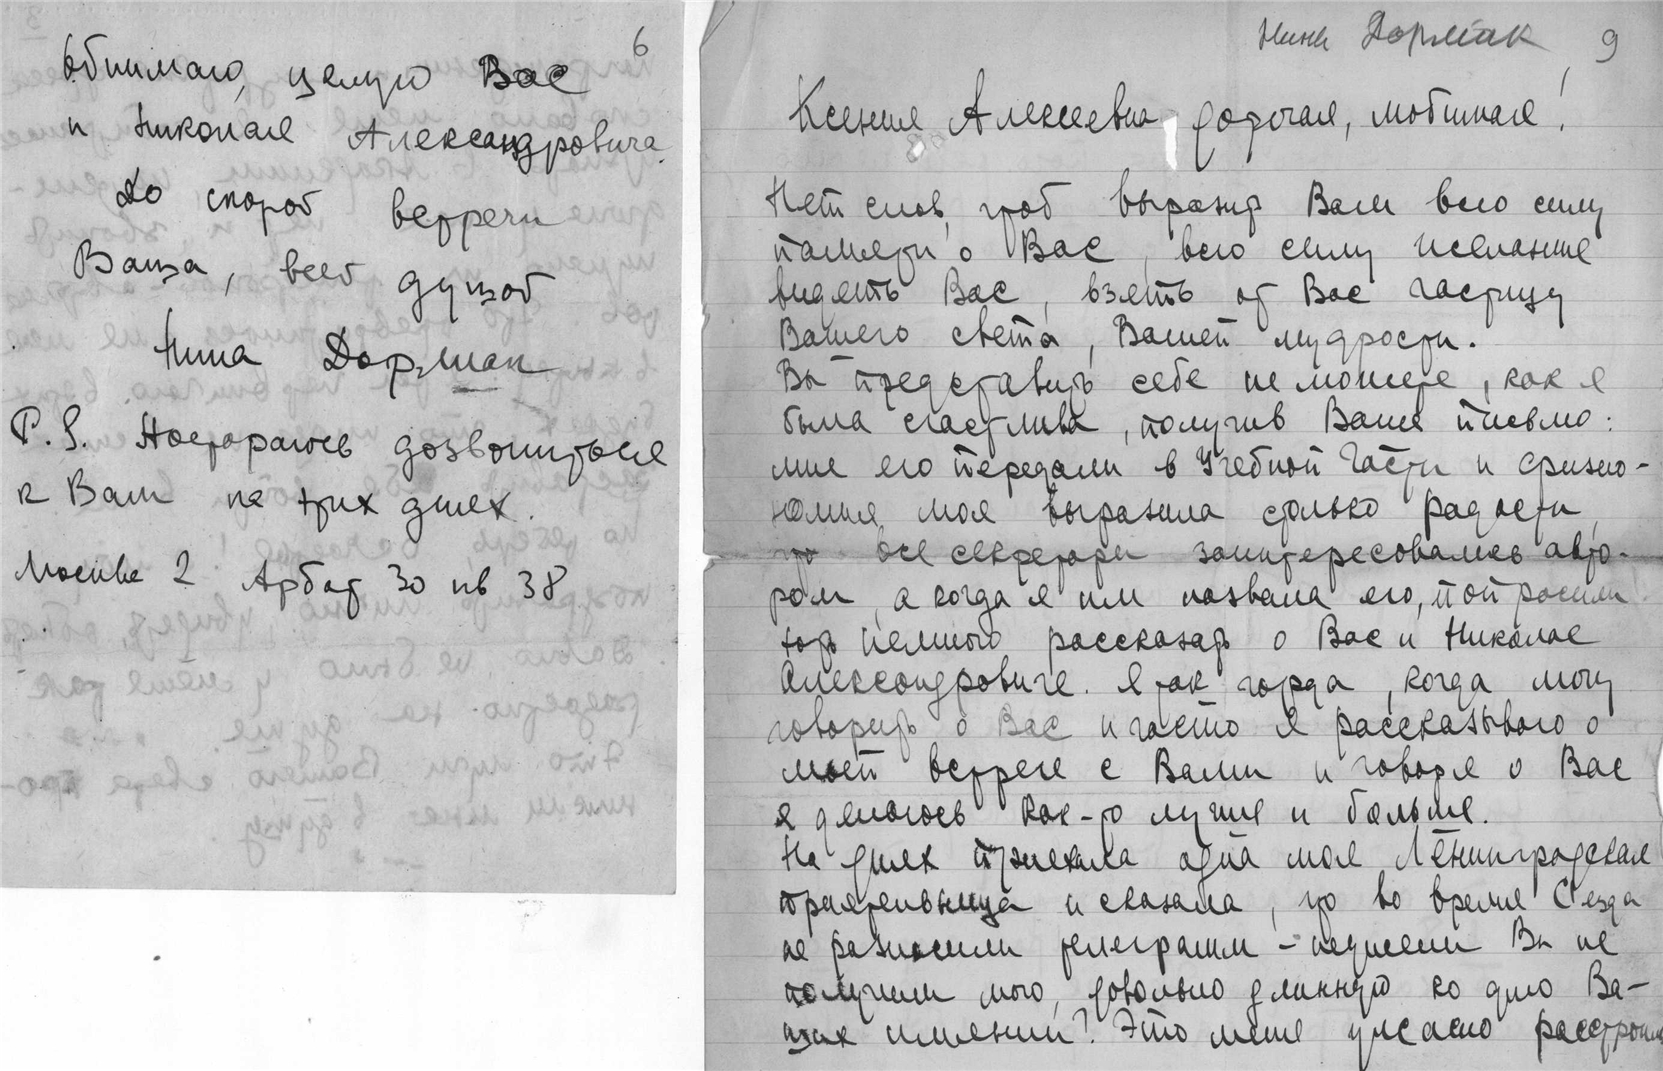 6
Обнимаю, целую Вас
и Николая Александровича.
До скорой встречи
Ваша, всей душой
Нина Дорлиак
P.S. Постараюсь дозвониться
к Вам на этих днях.
Москва 2 Арбат 30 кв 38
Нина Дорлиак 9
Ксения Алексеевна дорогая, любимая!
Нет слов, чтоб выразить Вам всю силу
памяти о Вас, всю силу желания
видеть Вас, взять от Вас частицу
Вашего света, Вашей мудрости.
Вы представить себе не можете, как я
была счастлива, получив Ваше письмо:
мне его передали в Учебной части и физио-
номия моя выразила столько радости,
что все секретари заинтересовались авто-
ром, а когда я им назвала его, попросили
хоть немного рассказать о Вас и Николае
Александровиче. Я так горда, когда могу
говорить о Вас и часто я рассказываю о
моей встрече с Вами и говоря о Вас
я делаюсь как-то лучше и больше.
На днях приехала одна моя Ленинградская
приятельница и сказала, что во время Съезда
не разносили телеграмм – неужели Вы не
получили мою, довольно длинную ко дню Ва-
ших именин? Это меня ужасно расстроило